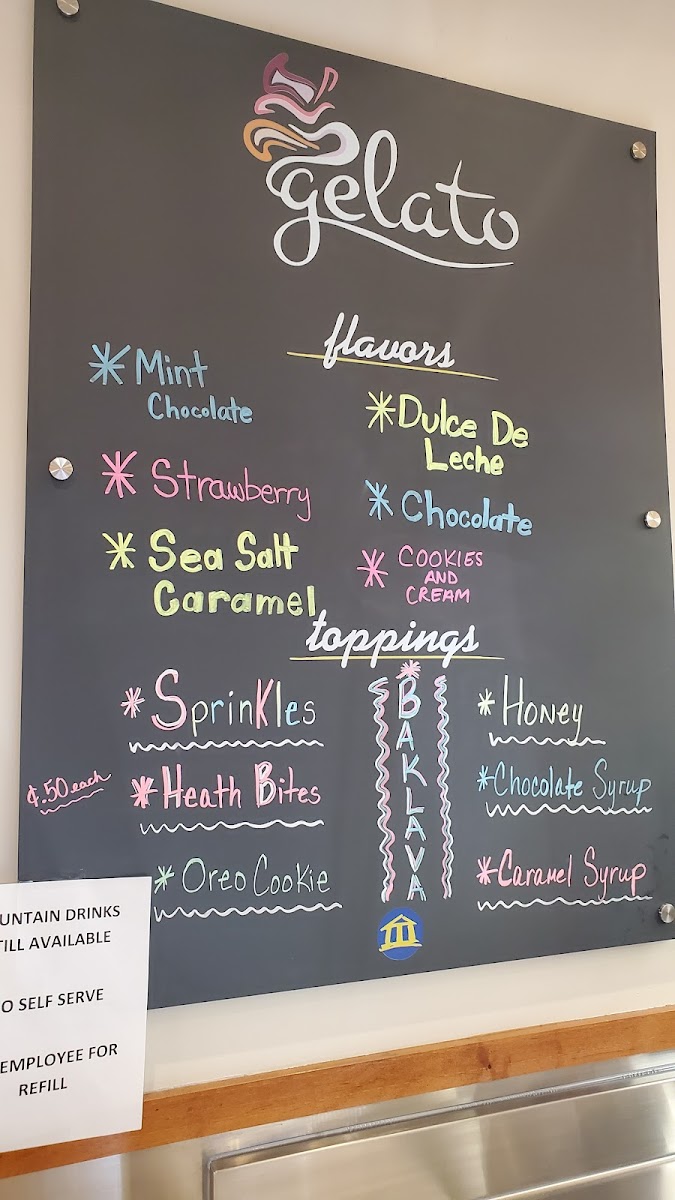 gelato
flavors
* Mint
Chocolate
* Strawberry
* Sea Salt
Caramel
* Dulce De
Leche
* Chocolate
* COOKIES
AND
CREAM
toppings
* Sprinkles
¢.50 each
* Heath Bites
* Oreo Cookie
* BAKLAVA
* Honey
* Chocolate Syrup
* Caramel Syrup
UNTAIN DRINKS
TILL AVAILABLE
O SELF SERVE
EMPLOYEE FOR
REFILL